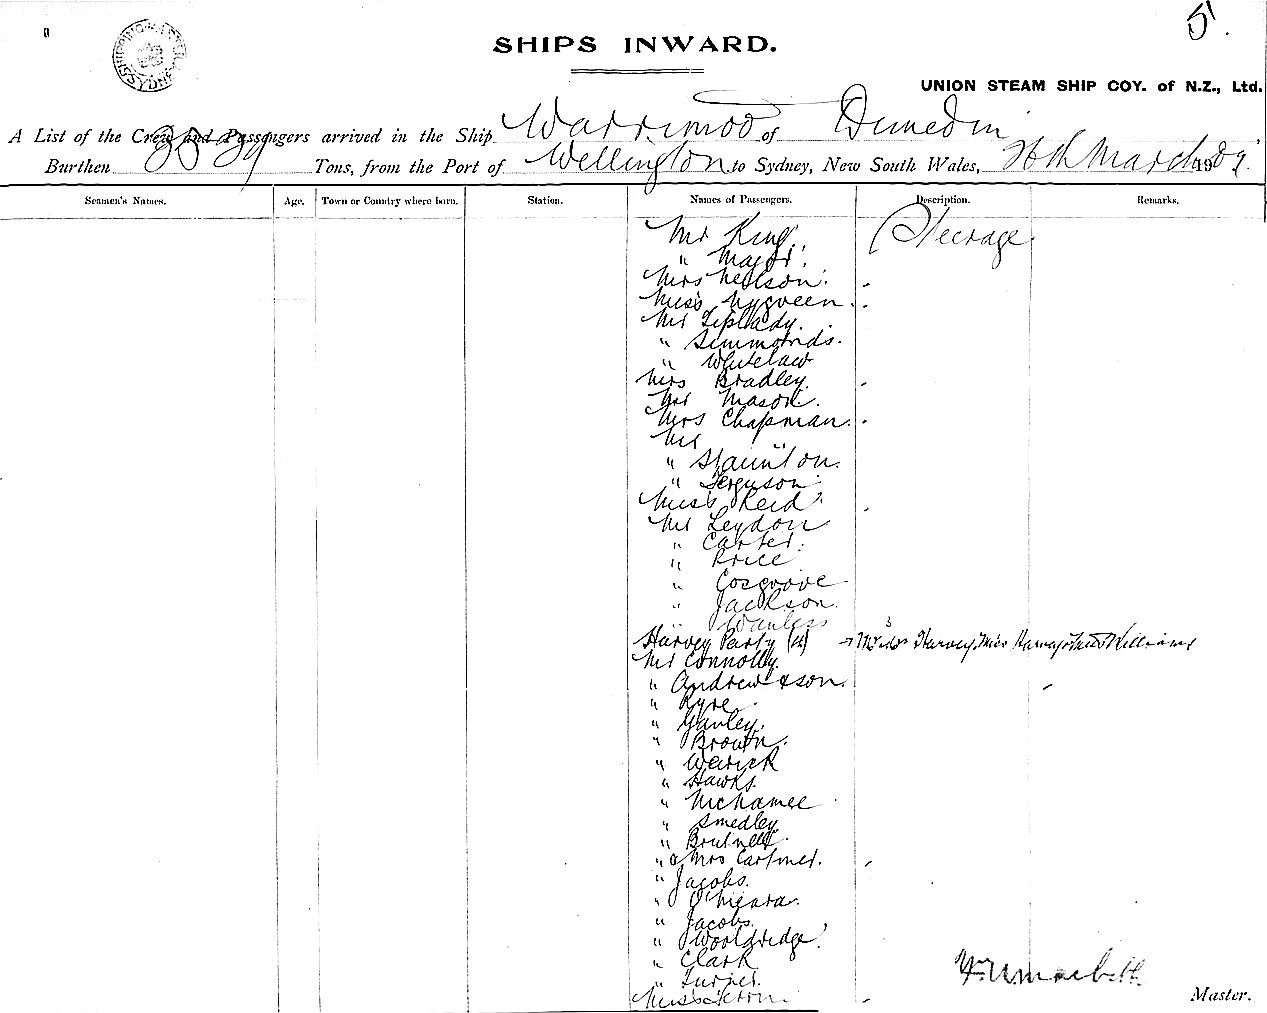 5.
SHIPS INWARD.
UNION STEAM SHIP COY. of N.Z., Ltd.
A List of the Crew and Passengers arrived in the Ship Warrimoo of Dunedin
Burthen Tons, from the Port of Wellington to Sydney, New South Wales, March 1909.
Seamen's Names. Age. Town or Country where born. Station. Names of Passengers. Description. Remarks.
Mr King. Steerage
" Major.
Mrs Neilson.
Miss Nygreen.
Mr Liplady.
" Simmonds.
" Whitelaw
Mrs Bradley.
Mr Mason.
Mrs Chapman.
Mr "
" Staunton.
" Ferguson.
Miss Reid.
Mr Leydon
" Carter.
" Price
" Cosgrove
" Jackson.
" Wanless
Harvey Party (4) → Harvey, Miss Williams
Mr Connolly.
" Andrew & son.
" Ryre
" Ganley.
" Brown.
" Warick
" Hawks.
" McNamee
" Smedley
" Brutnell.
" & Mrs Cartmel.
" Jacobs.
" O'Meara.
" Jacobs.
" Wooldridge.
" Clark
" Turner.
Miss
Master.